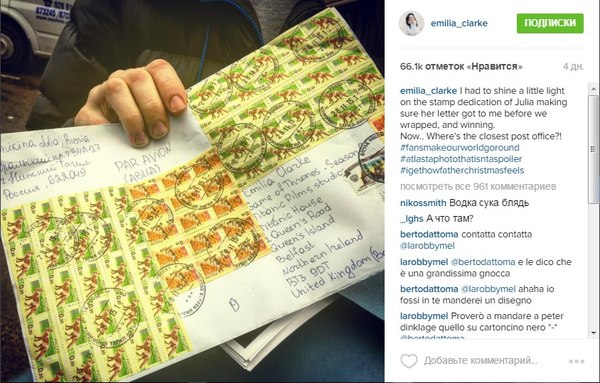 028 91
873245 /870
PAR AVION
(АВИА)
Россия
Emilia Clarke
Game of Thrones Season
Titanic Films studio
Titanic House
Queen's Road
Queen's Island
Belfast
Northern Ireland
BT3 9DT
United Kingdom
B
emilia_clarke
ПОДПИСКИ
66.1k отметок «Нравится»
4 дн.
emilia_clarke I had to shine a little light
on the stamp dedication of Julia making
sure her letter got to me before we
wrapped, and winning.
Now.. Where's the closest post office?!
#fansmakeourworldgoround
#atlastaphotothatisntaspoiler
#igethowfatherchristmasfeels
посмотреть все 961 комментариев
nikossmith Водка сука блядь
_lghs А что там?
bertodattoma contatta contatta
@larobbymel
larobbymel @bertodattoma e le dico che
è una grandissima gnocca
bertodattoma @larobbymel ahaha io
fossi in te manderei un disegno
larobbymel Proverò a mandare a peter
dinklage quello su cartoncino nero *-*
@bertodattoma
Добавьте комментарий...